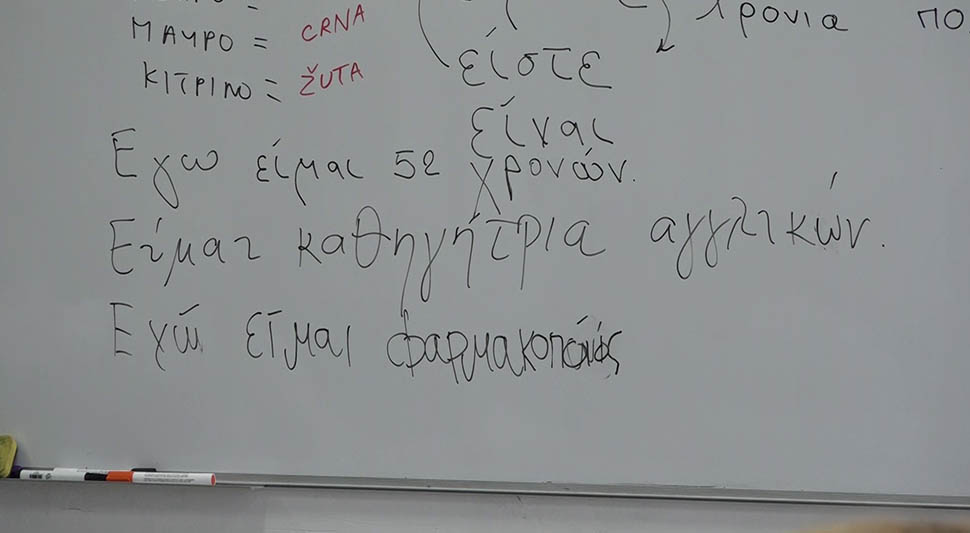 ΜΑΥΡΟ = CRNA
χρονια πο
ΚΙΤΡΙΝΟ = ŽUTA
είστε
είναι
Εγω είμαι 52 χρονών.
Είμαι καθηγήτρια αγγλικών.
Εχώ είμαι